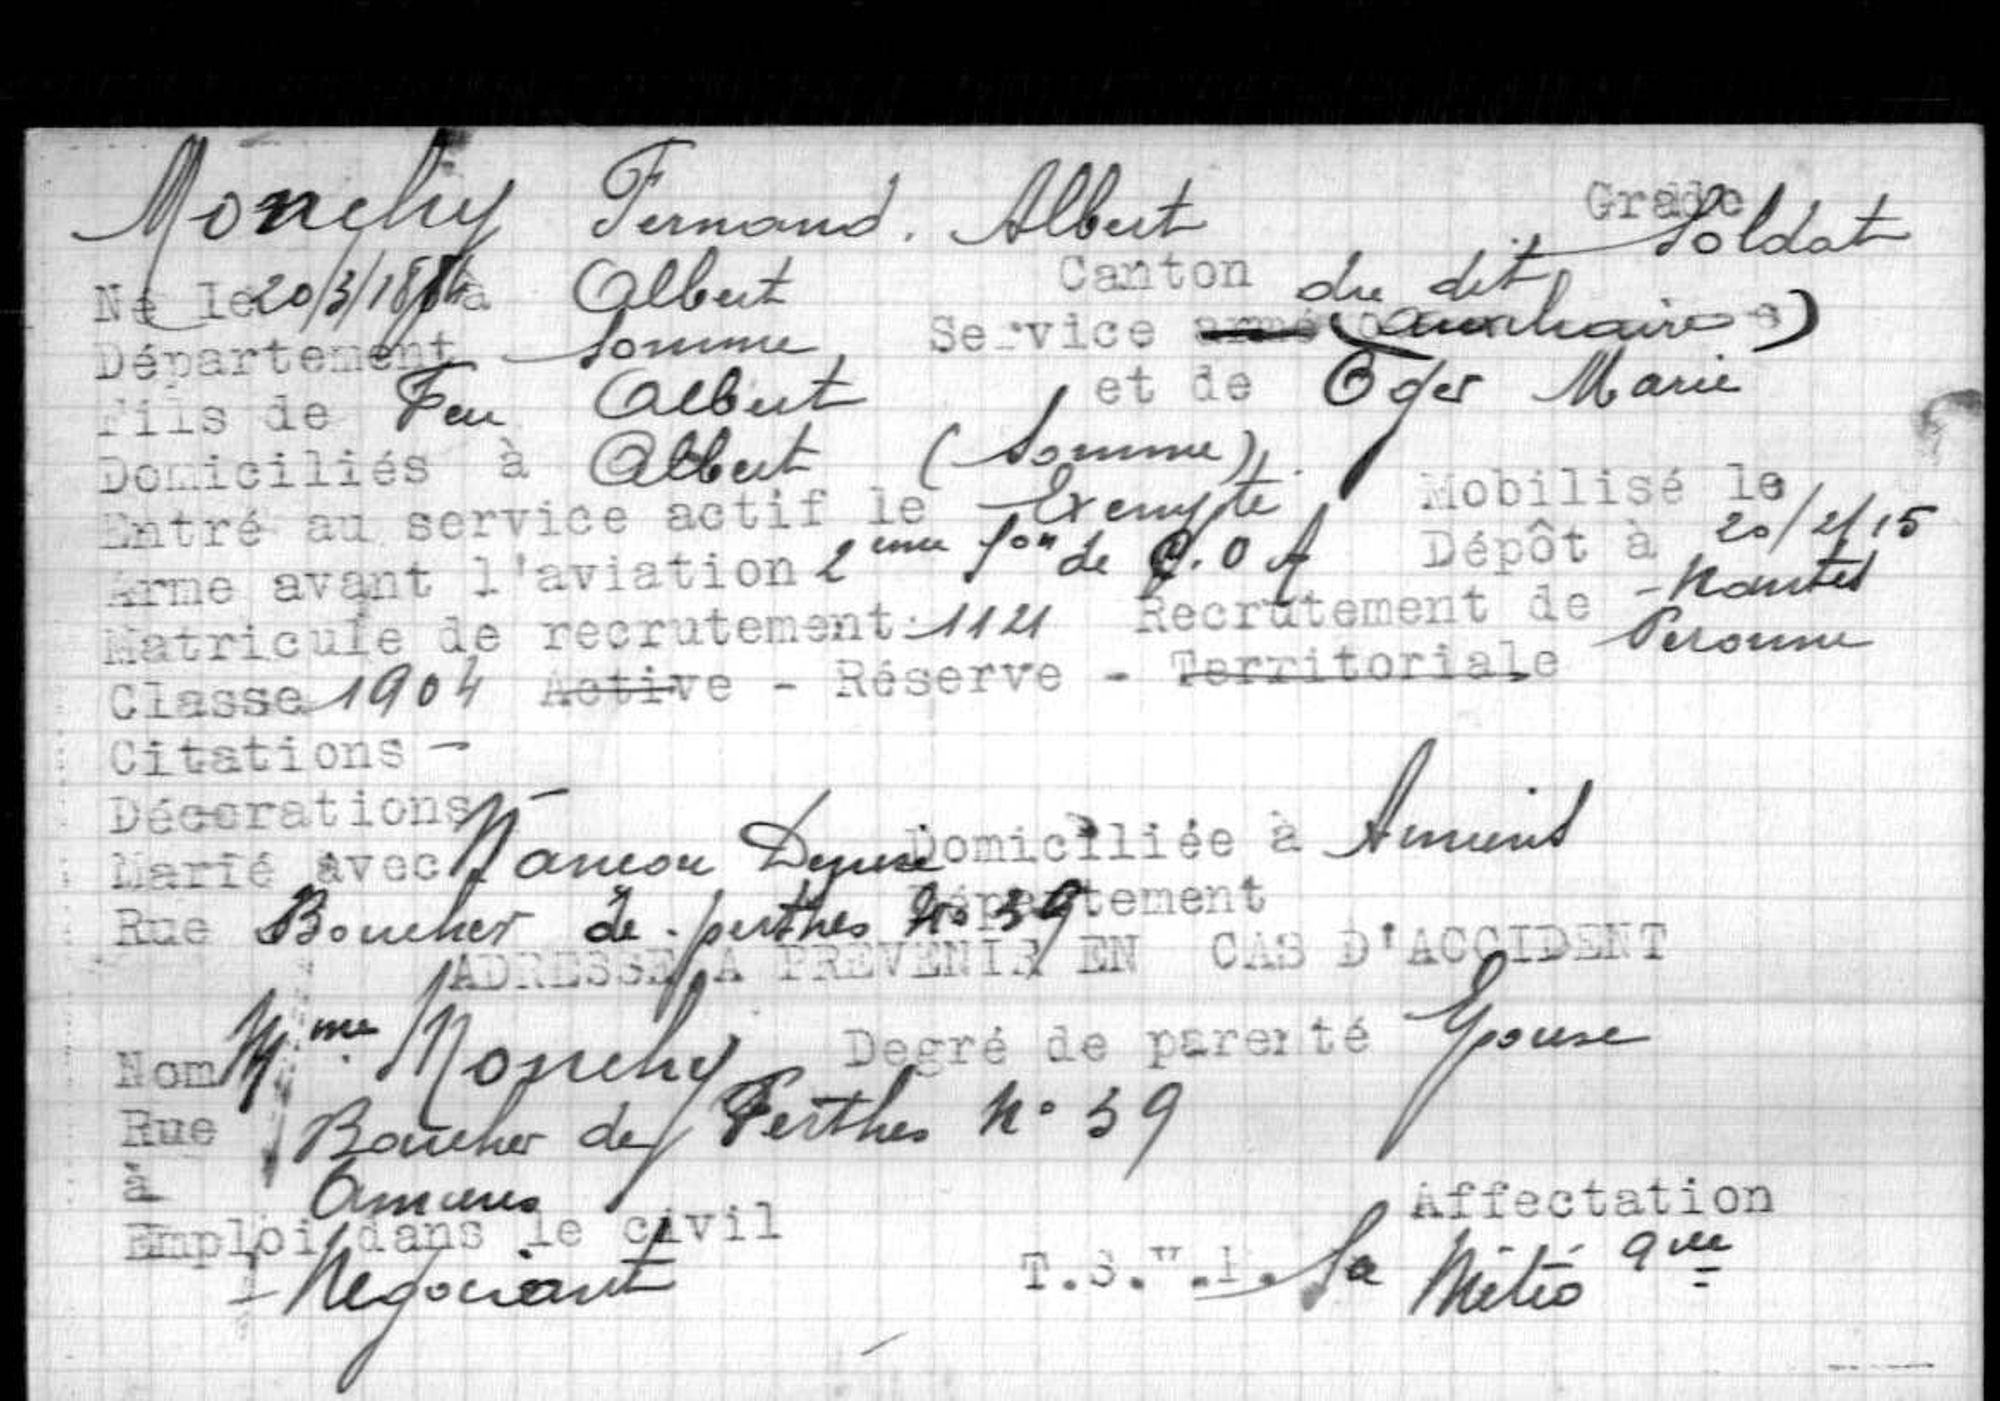 Monchy Fernand. Albert Grade Soldat
Né le 20/3/1884 à Albert Canton du dit
Département Somme Service armé (auxiliaire)
Fils de Feu Albert et de Oger Marie
Domiciliés à Albert (Somme)
Entré au service actif le Exempté Mobilisé le 20/2/15
Arme avant l'aviation 2eme Son de C.O.A Dépôt à Nantes
Matricule de recrutement 1121 Recrutement de Peronne
Classe 1904 Active - Réserve - Territoriale
Citations -
Décorations -
Marié avec Domiciliée à Amiens
Rue Boucher de perthes No 59 Département
ADRESSE A PREVENIR EN CAS D'ACCIDENT
Nom Mme Monchy Degré de parenté Epouse
Rue Boucher de Perthes No 59
à Amiens
Emploi dans le civil Affectation
- Négociant T.S. Météo